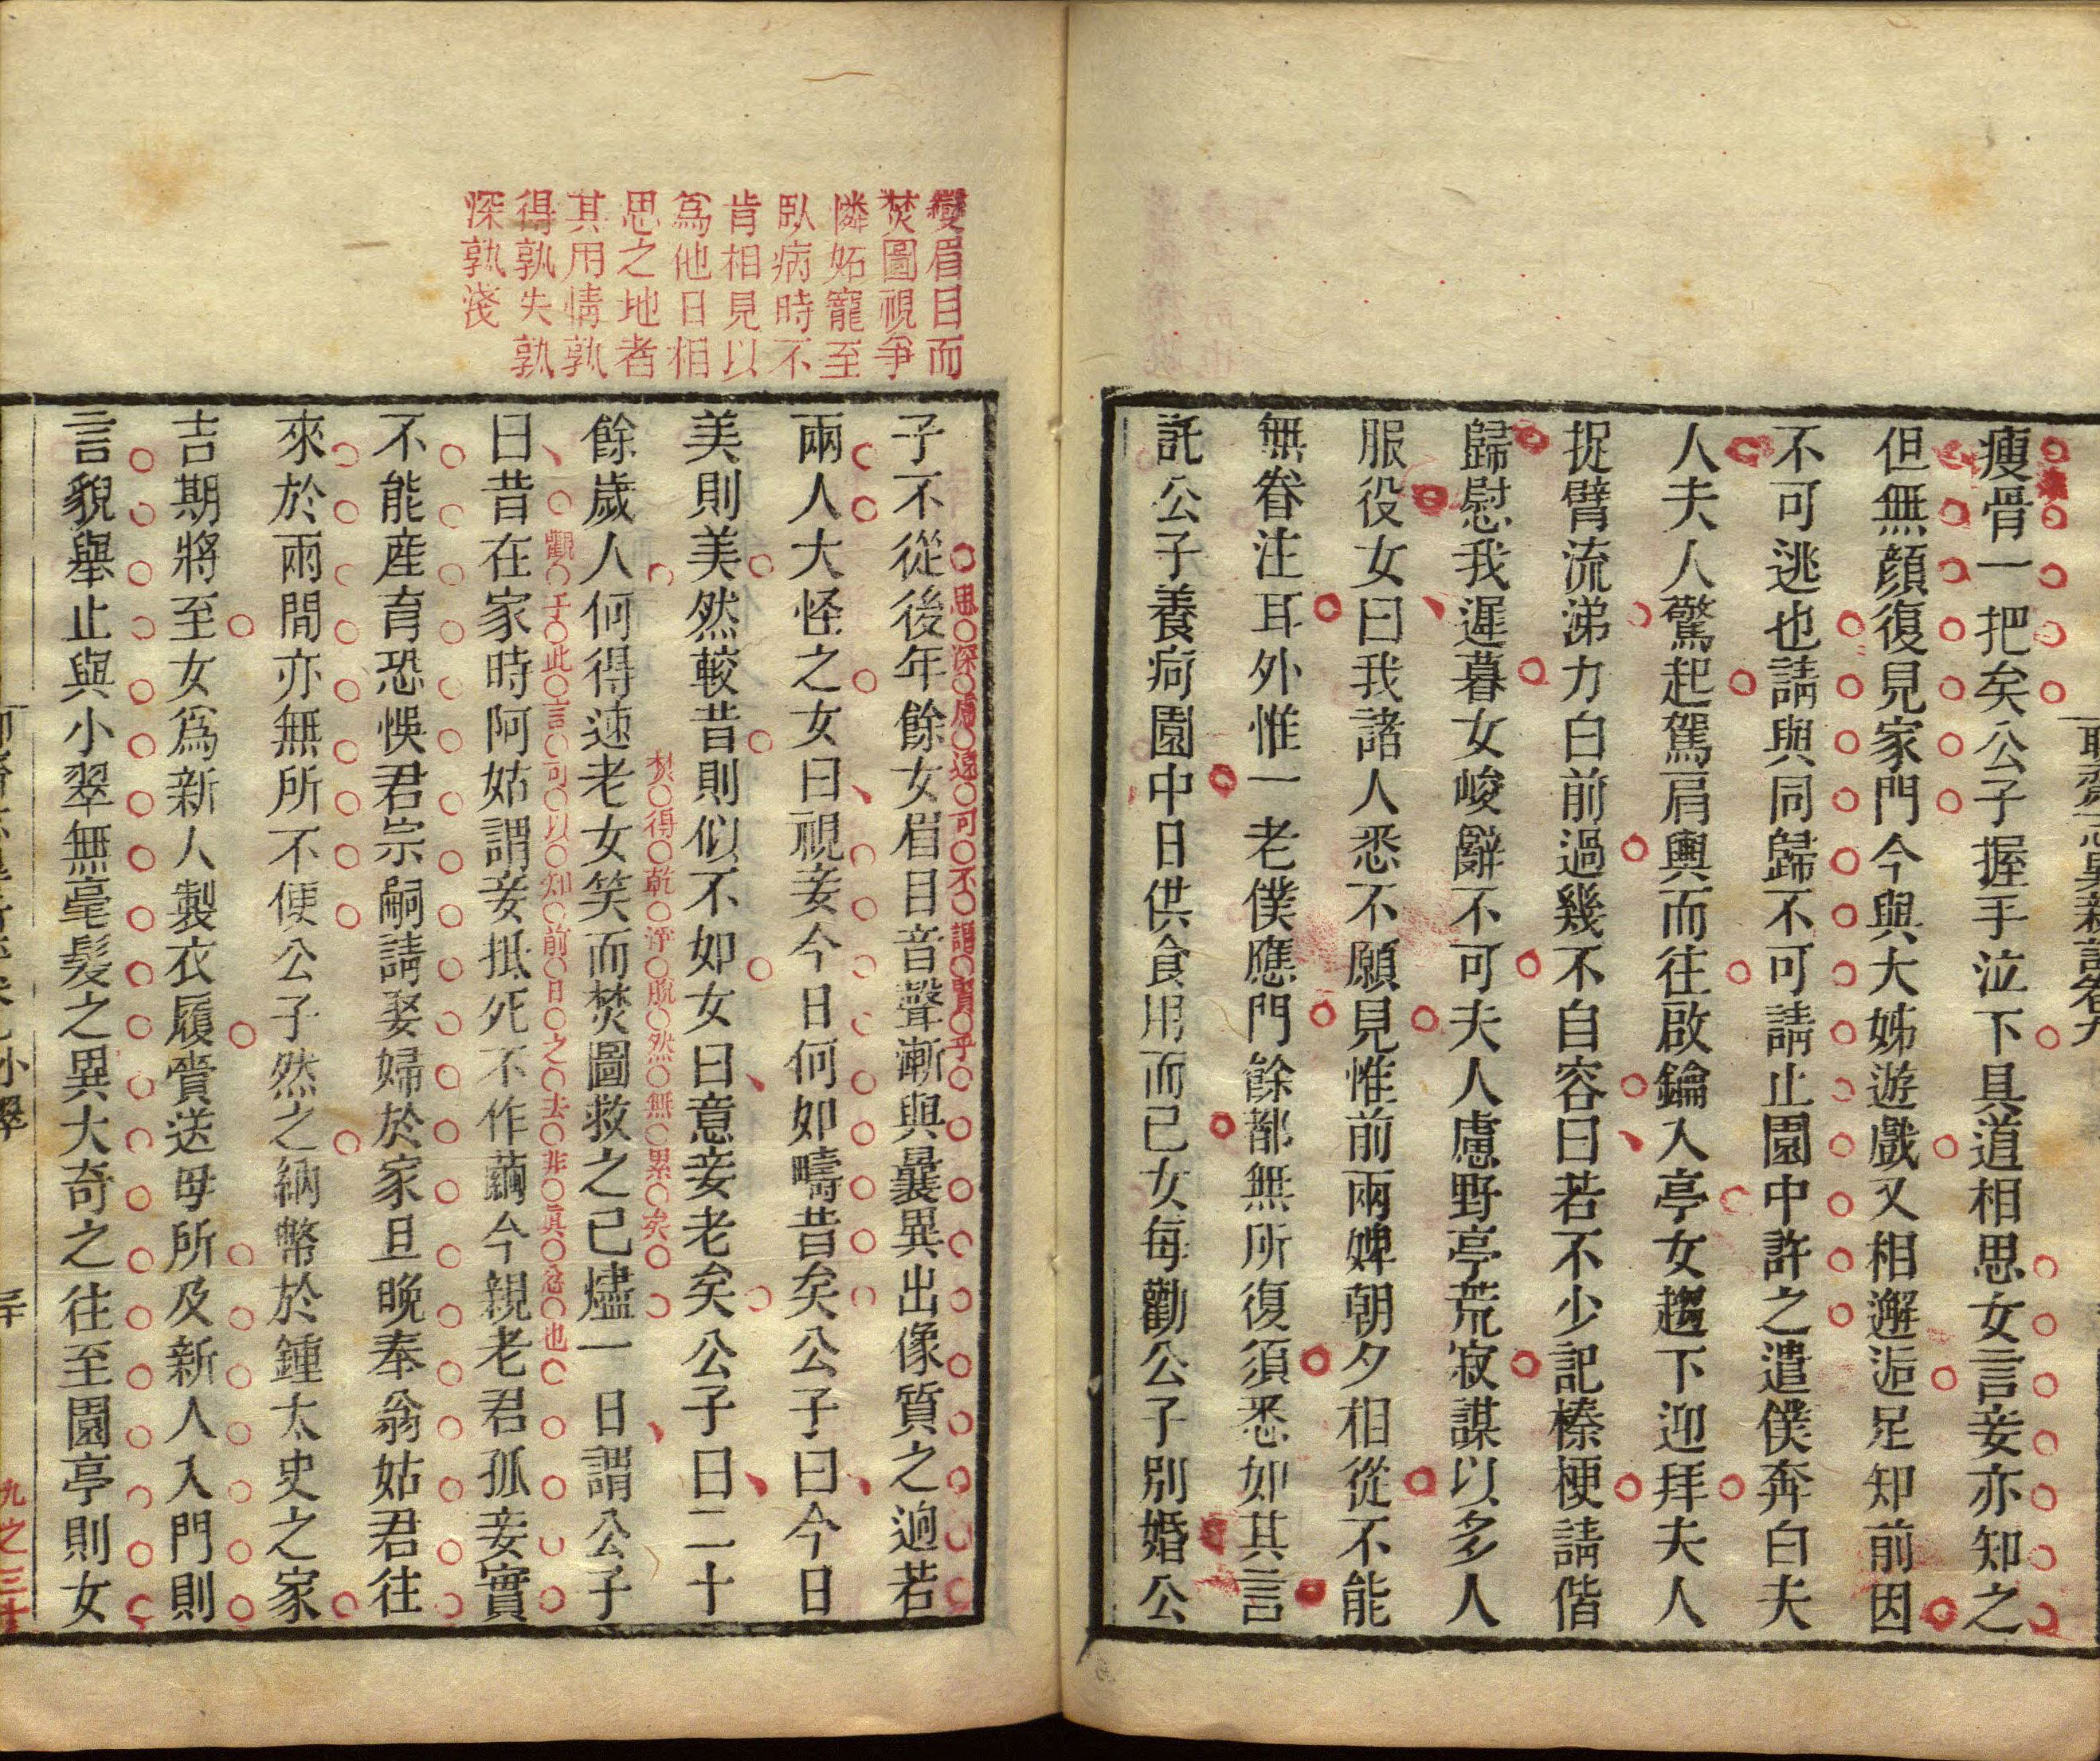 聊齋志異新評卷九
瘦骨一把矣公子握手泣下具道相思女言妾亦知之
但無顏復見家門今與大姊遊戲又相邂逅足知前因
不可逃也請與同歸不可請止園中許之遣僕奔白夫
人夫人驚起駕肩輿而往啟鑰入亭女趨下迎拜夫人
捉臂流涕力白前過幾不自容曰若不少記榛梗請偕
歸慰我遲暮女峻辭不可夫人慮野亭荒寂謀以多人
服役女曰我諸人悉不願見惟前兩婢朝夕相從不能
無眷注耳外惟一老僕應門餘都無所復須悉如其言
託公子養疴園中日供食用而已女每勸公子別婚公
變眉目而
焚圖視爭
憐妬寵至
臥病時不
肯相見以
為他日相
思之地者
其用情孰
得孰失孰
深孰淺
思深慮遠可不謂賢乎
子不從後年餘女眉目音聲漸與曩異出像質之迥若
兩人大怪之女曰視妾今日何如疇昔矣公子曰今日
美則美然較昔則似不如女曰意妾老矣公子曰二十
焚得乾淨脫然無累矣
餘歲人何得速老女笑而焚圖救之已燼一日謂公子
觀于此言可以知前日之去非真忿也
曰昔在家時阿姑謂妾抵死不作繭今親老君孤妾實
不能產育恐悞君宗嗣請娶婦於家旦晚奉翁姑君往
來於兩間亦無所不便公子然之納幣於鍾太史之家
吉期將至女為新人製衣履賫送母所及新人入門則
言貌舉止與小翠無毫髮之異大奇之往至園亭則女
小翠
九之三十